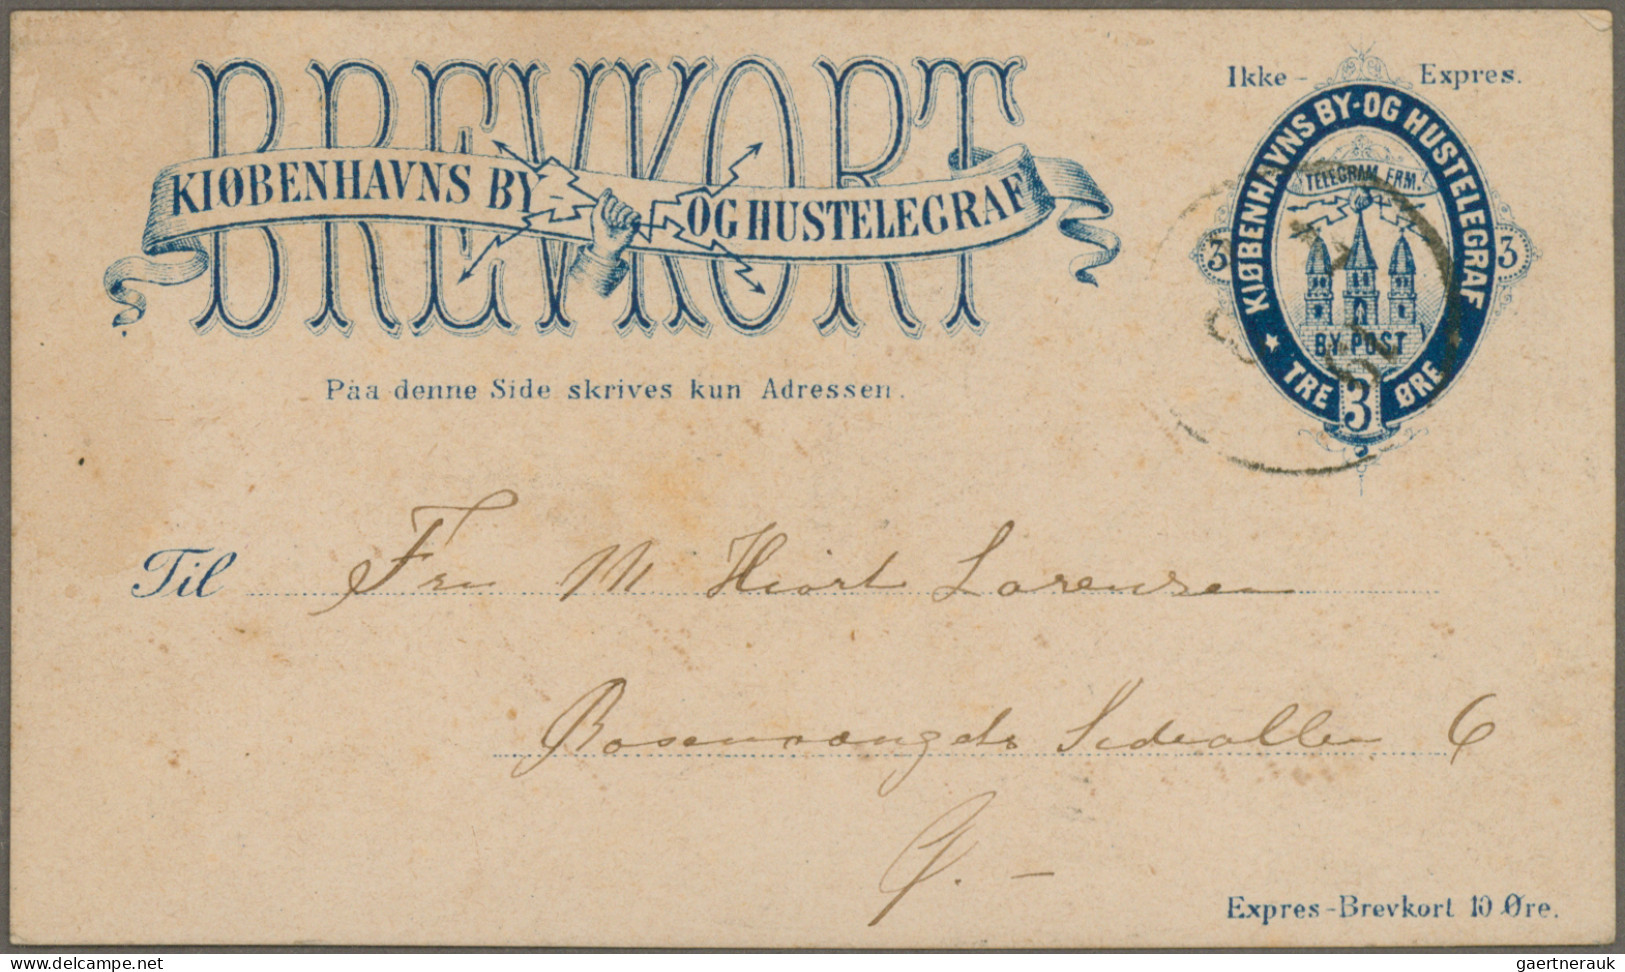 BREVKORT
KIØBENHAVNS BY OG HUSTELEGRAF
Paa denne Side skrives kun Adressen.
Ikke - Expres.
KIØBENHAVNS BY-OG HUSTELEGRAF
TELEGRAM FRM.
3 3
BY-POST
★ TRE 3 ØRE ★
Til Fru M Hiort Lorenzen
Rosenvængets Sideallee 6
Ø. -
Expres-Brevkort 10 Øre.
gaertnerauk